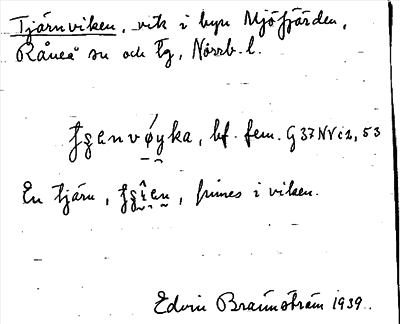 Tjärnviken, vik i byn Mjöfjärden,
Råneå sn och tg, Norrb. l.
bf. fem. G37NVc2,53
En tjärn, finnes i viken.
Edvin Brännström 1939.